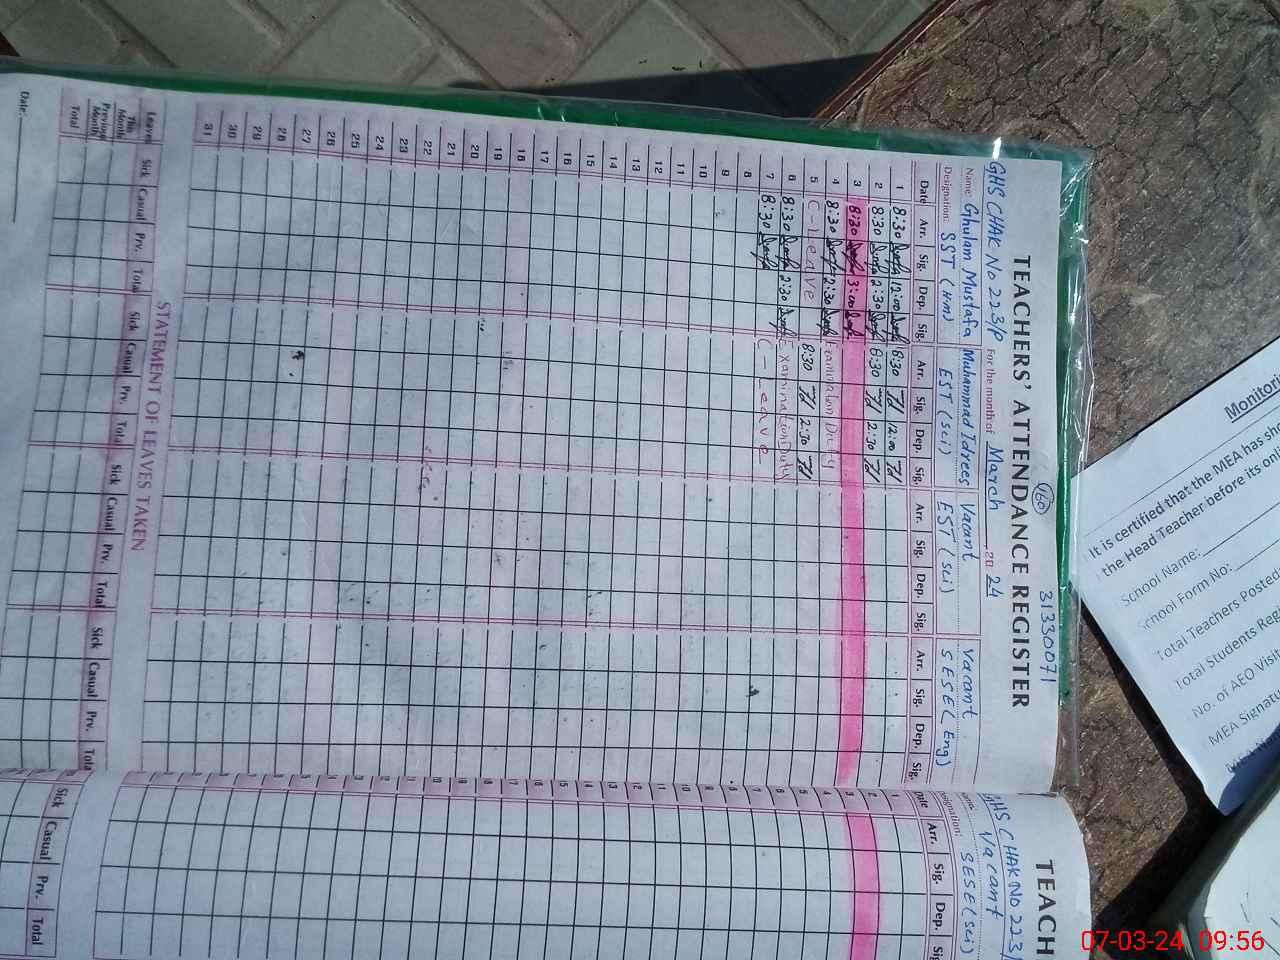 TEACHERS' ATTENDANCE REGISTER
160
31330071
GHS CHAK No 223/P For the month of March 20 24
Name: Ghulam Mustafa Muhammad Idrees Vacant Vacant
Designation: SST (HM) EST (Sci) EST (Sci) SESE (Eng)
Date Arr. Sig. Dep. Sig. Arr. Sig. Dep. Sig. Arr. Sig. Dep. Sig. Arr. Sig. Dep. Sig.
1 8:30 12:00 8:30 12:00
2 8:30 2:30 8:30 2:30
3 8:30 3:00
4 8:30 2:30 Examination Duty
5 C-Leave 8:30 2:30
6 8:30 2:30 Examination Duty
7 8:30 C-Leave
8
9
10
11
12
13
14
15
16
17
18
19
20
21
22
23
24
25
26
27
28
29
30
31
STATEMENT OF LEAVES TAKEN
Leaves Sick Casual Prv. Total Sick Casual Prv. Total Sick Casual Prv. Total Sick Casual Prv. Total
This Month
Previous Month
Total
Date:
TEACH
GHS CHAK No 223/
Vacant
Designation: SESE (Sci)
Date Arr. Sig. Dep.
Sick Casual Prv. Total
Monitori
It is certified that the MEA has sho
the Head Teacher before its onli
School Name:
School Form No:
Total Teachers Posted:
Total Students Reg
No. of AEO Visit
MEA Signatu
07-03-24 09:56